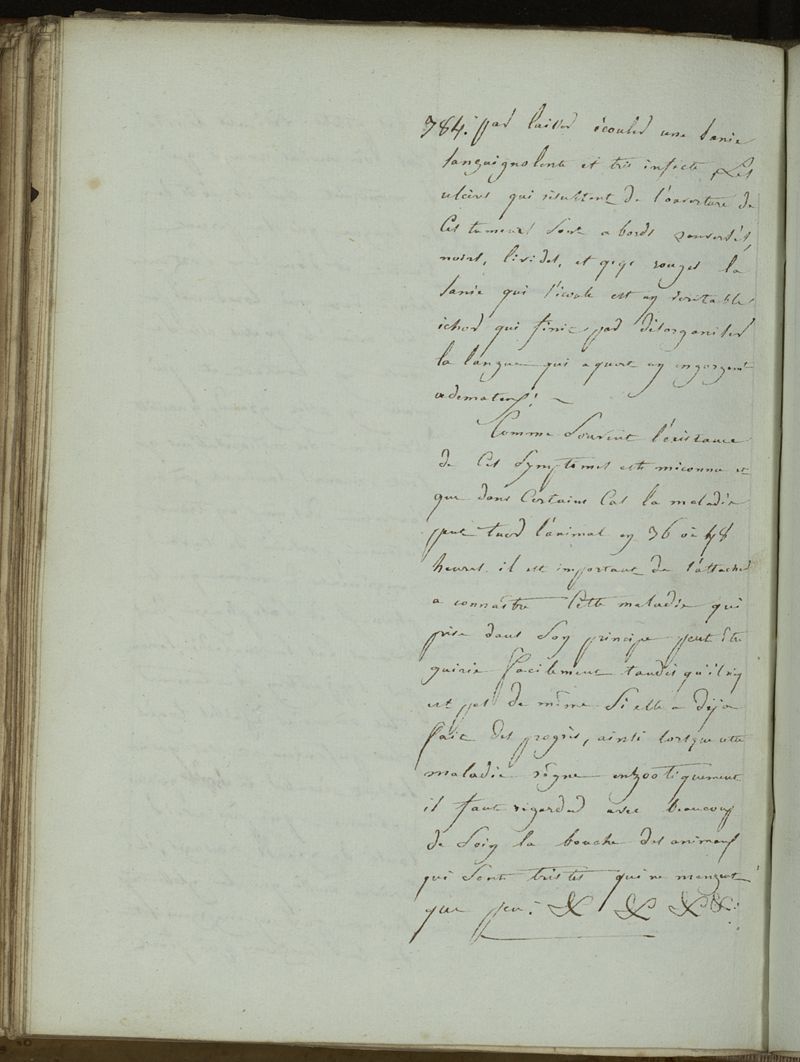 384. par laisser écouler une sanie
sanguignolente et tres infecte Les
ulcères qui résultent de l'ouverture de
Ces tumeurs Sont a bords renversés,
noirs, livides, et qqs rouges la
sanie qui s'écoule est un veritable
ichor qui finit par désorganiser
la langue qui aquert un engorgemt
œdemateux!
Comme Souvent l'existance
de Ces Symptomes est méconnu et
que dans Certains Cas la maladie
peut tuer l'animal en 36 où 48
heures. il est important de s'attacher
a connaître Cette maladie qui
prise dans Son principe peut être
guérie facilement tandis qu'il n'y
est pas de même Si elle a déja
fait des progrès, ainsi lorsque cette
maladie règne enzootiquement
il faut regarder avec beaucoup
de Soin la bouche des animaux
qui Sont tristes qui ne mangent
que peu. & & &&.